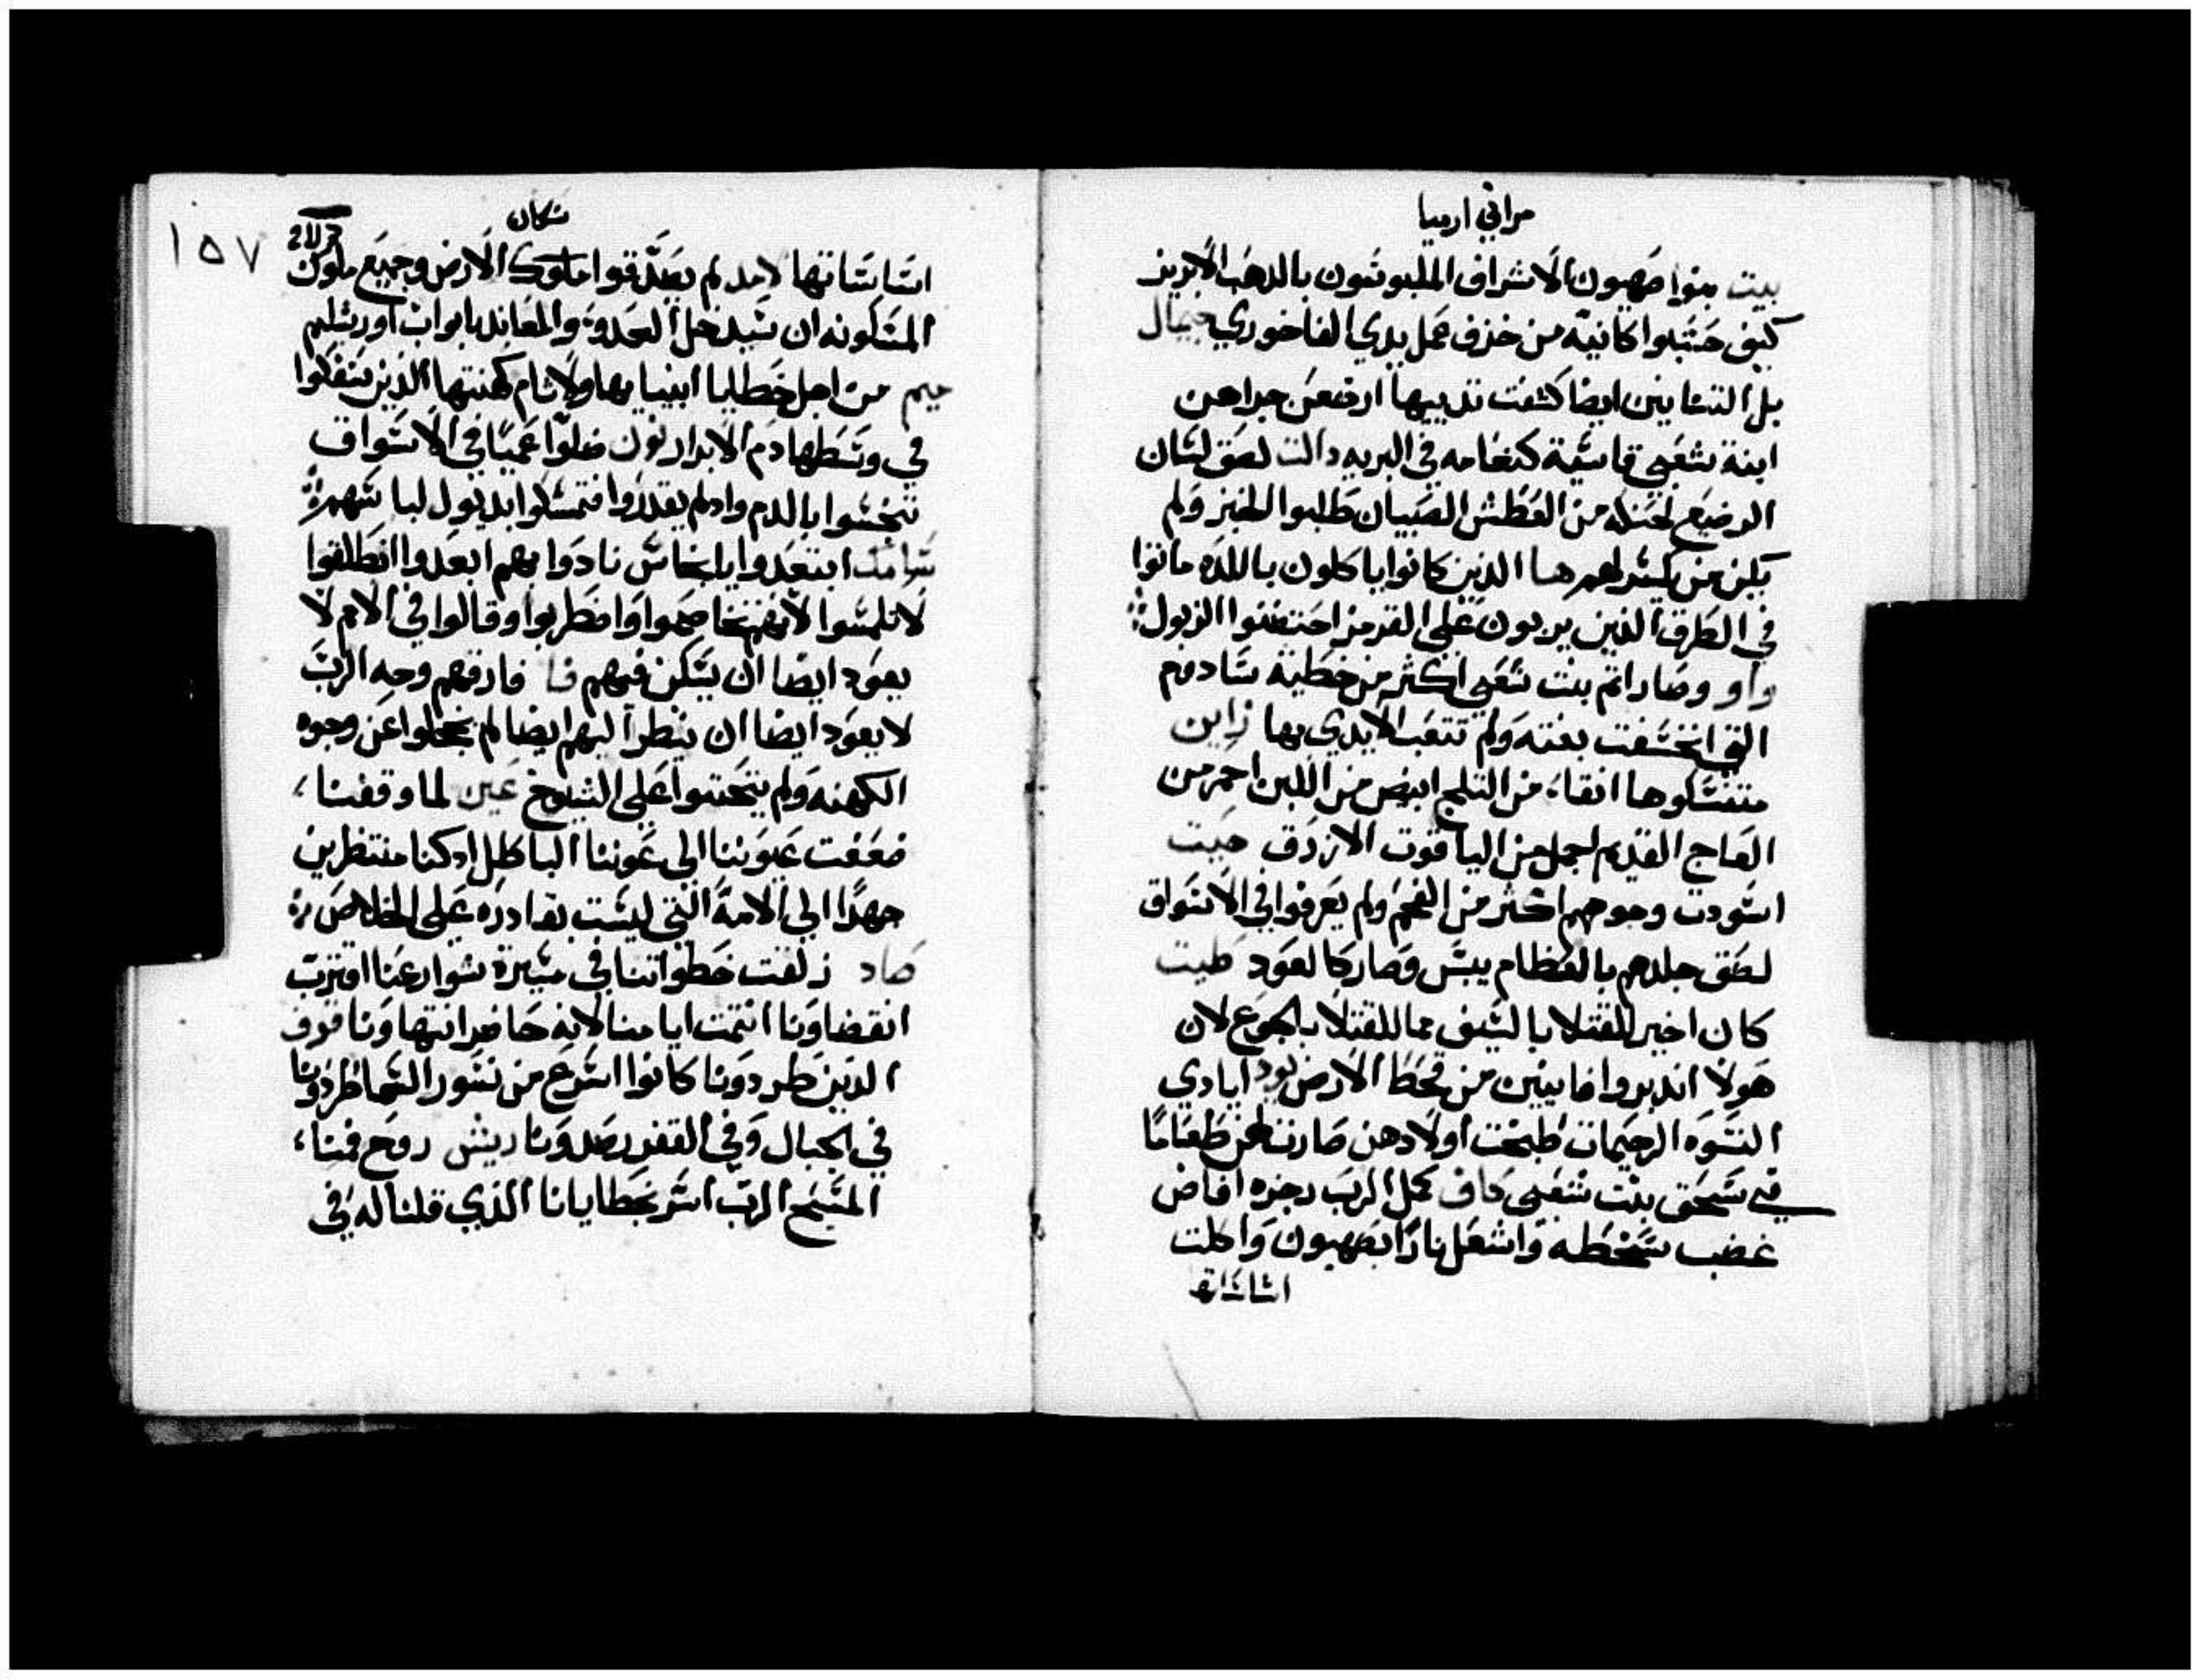 مراثي ارميا
بيت بنوا صهيون الاشراف الملبوسون بالدهب الابريز
كيف حسبوا كانية من خزف عمل يدي الفاخوري جيمال
بل التنانين ايضا كشفت تدييها ارضعن جراهن
ابنة شعبي قاسية كنعامه في البريه دالت لصق لسان
الرضيع لحنكه من العطش الصبيان طلبوا الخبز ولم
يكن من يكسر لهم ها الذين كانوا ياكلون باللذه ماتوا
في الطرق الذين يربون علي القرمز احتضنوا الزبول
واو وصار اثم بنت شعبي اكثر من خطية سادوم
التي انخسفت بغته ولم تتعب الايدي بها زاين
متنسكوها انقاء من التلج ابيض من اللبن احمر من
العاج القديم اجمل من الياقوت الازرق حيت
اسودت وجوههم اكثر من الفحم ولم يعرفوا في الاسواق
لصق جلدهم بالعظام يبس وصار كالعود طيت
كان اخير للقتلا بالسيف مما للقتلا بالجوع لان
هولا اندبروا فانيين من قحط الارض يود ايادي
النسوه الرحيمات طبخت اولادهن صارت لهن طعامًا
في سحق بنت شعبي كاف كمل الرب رجزه افاض
غضب سخطه واشعل نارًا بصهيون واكلت
اساساتها
١٥٧
سكان
اساساتها لامد لم يصدقوا ملوك الارض وجميع
المسكونه ان سيدخل العدو والمعاند بابواب اورشليم
جيم من اجل خطايا انبيايها ولاثام كهنتها الذين سفكوا
في وسطها دم الابرار نون ضلوا عميًا في الاسواق
تنجسوا بالدم واد لم يقدروا فتمسكوا بديول لباسهم
سامك ابتعدوا يا انجاس نادوا بهم ابعدوا انطلقوا
لا تلمسوا لانهم تخاصموا واضطربوا وقالوا في الامم لا
يعود ايضا ان يسكن فيهم فا فارقهم وجه الرب
لا يعود ايضا ان ينظر اليهم ايضا لم يخجلوا عن وجوه
الكهنه ولم يتحننوا علي الشيوخ عين لما وقفنا
ضعفت عيوننا الي عوننا الباطل اد كنا منتظرين
جهدًا الي الامة التي ليست بقادره علي الخلاص
صاد زلفت خطواتنا في مسيرة شوارعنا اقتربت
انقضاونا انتمت ايامنا لانه حاضر انتهاونا قوف
الذين طردونا كانوا اسرع من نسور السما طردونا
في الجبال وفي القفر رصدونا ريش روح فمنا
المسيح الرب اسر بخطايانا الذي قلنا له في